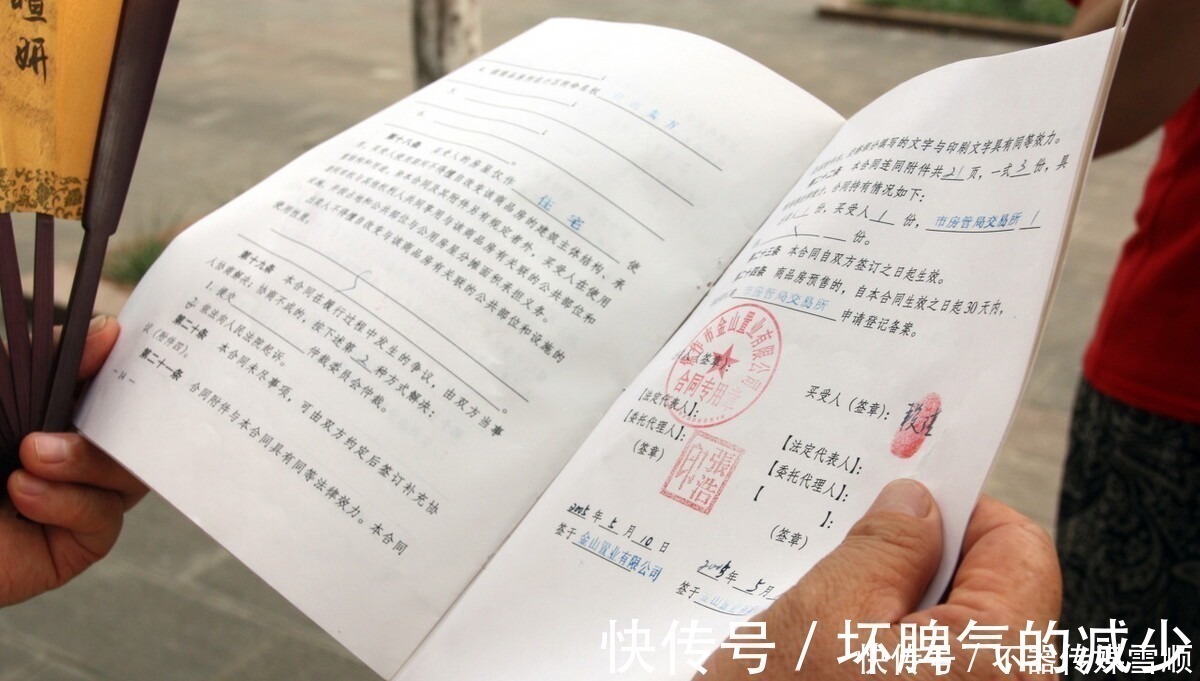 喧
妍
卖方
第十八条 买受人的房屋仅作 住宅 使
用，买受人使用期间不得擅自改变该商品房的建筑主体结构、承
重结构和用途。除本合同及其附件另有规定者外，买受人在使用
期间有权与其他权利人共同享用与该商品房有关联的公共部位和
设施，并按占地和公共部位与公用房屋分摊面积承担义务。
出卖人不得擅自改变与该商品房有关联的公共部位和设施的
使用性质。
第十九条 本合同在履行过程中发生的争议，由双方当事
人协商解决；协商不成的，按下述第 2 种方式解决：
1. 提交 仲裁委员会仲裁。
2. 依法向人民法院起诉。
第二十条 本合同未尽事项，可由双方约定后签订补充协
议（附件四）。
第二十一条 合同附件与本合同具有同等法律效力。本合同
- 14 -
填写的文字与印刷文字具有同等效力。
第二十二条 本合同连同附件共 21 页，一式 3 份，具
有同等法律效力，合同持有情况如下：
1 份，买受人 1 份，市房管局交易所 1
份。
第二十三条 本合同自双方签订之日起生效。
第二十四条 商品房预售的，自本合同生效之日起30天内，
市房管局交易所 申请登记备案。
（签章）：
市金山置业有限公司
合同专用章
【法定代表人】：
【委托代理人】：
（签章）
張浩印
2005年5月10日
签于金山置业有限公司
买受人（签章）：
【法定代表人】：
【委托代理人】：
【 】：
（签章）
2005年5月
签于
快传号 / 坏脾气的减少
快传号 / 不器传媒雪顺